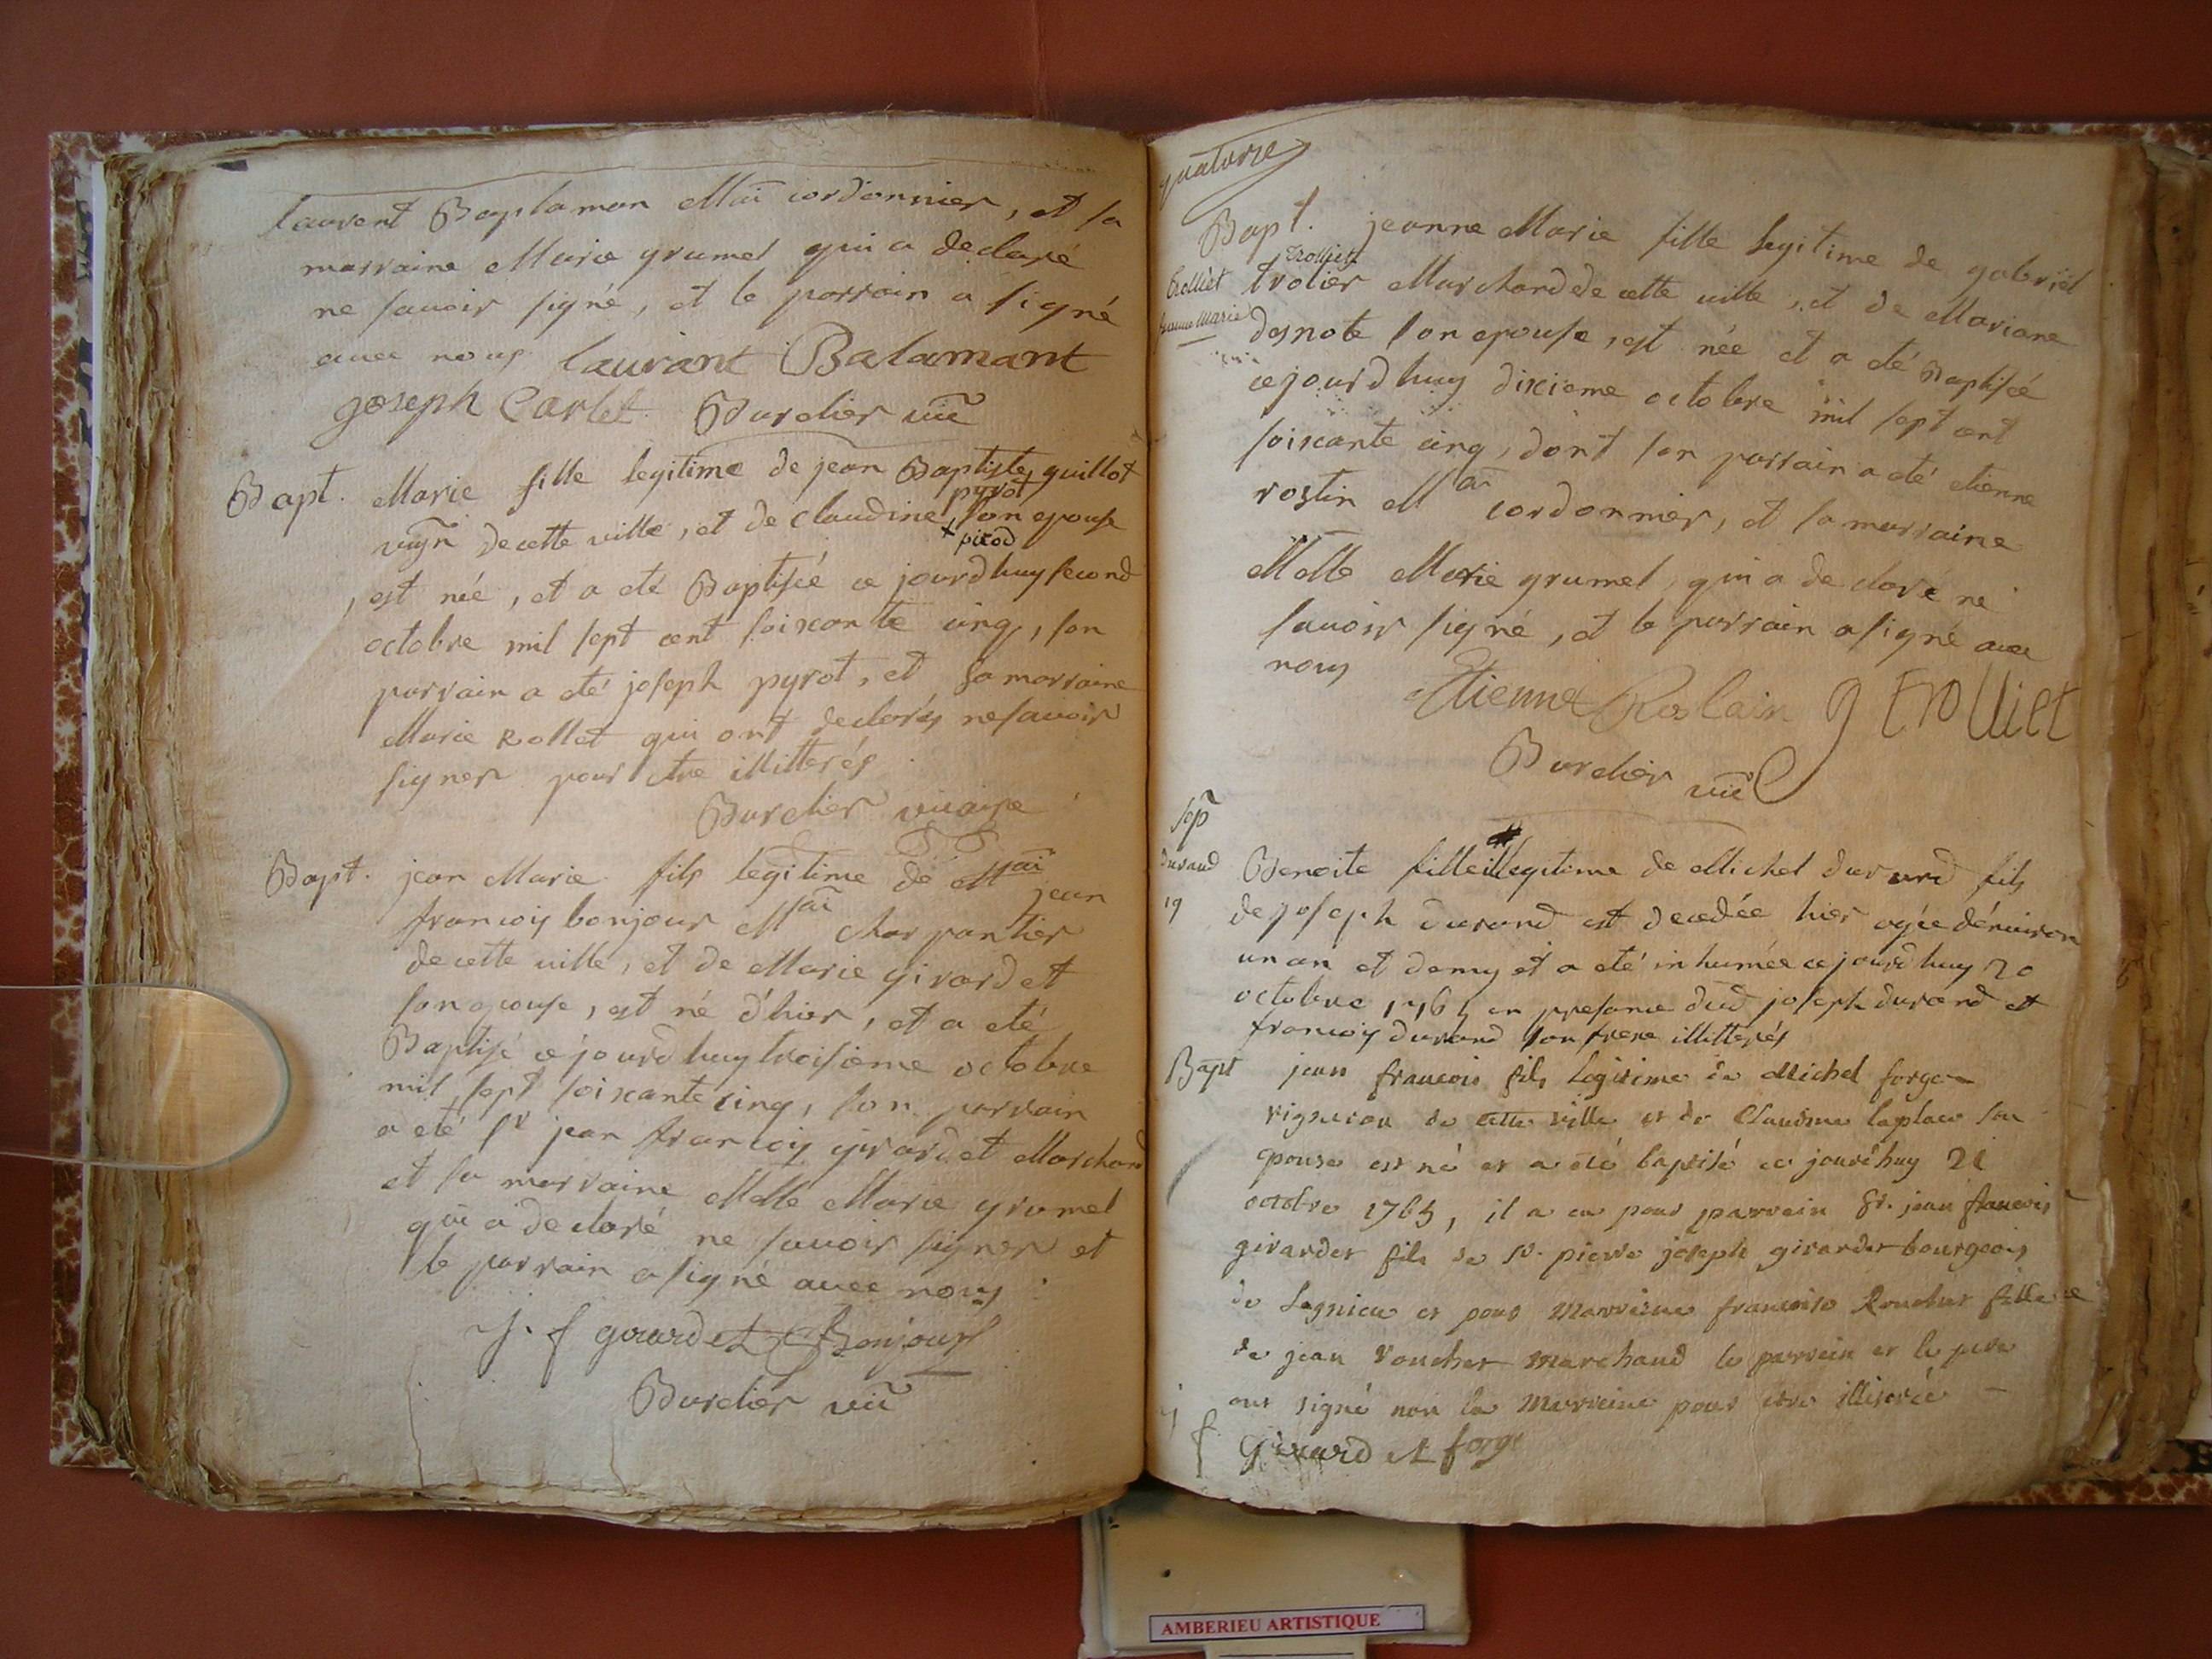 laurent Baplaman Mai cordonnier, et sa
marraine Marie grumel qui a declaré
ne savoir signé, et le parrain a signé
avec nous laurant Balamant
joseph Carlet Burdier vic
Bapt. Marie fille legitime de jean Baptiste guillot
pyrot
vign de cette ville, et de claudine son epouse
+ pirod
, est née, et a été Baptisée ce jourdhuy second
octobre mil sept cent soixante cinq, son
parrain a été joseph pyrot, et sa marraine
Marie Rollet qui ont declarés ne savoir
signer pour être illitterés
Burdier vicaire
Bapt. jean Marie fils legitime de Mai jean
francois bonjour Mai charpantier
de cette ville, et de Marie girardet
son epouse, est né d'hier, et a été
Baptisé ce jourdhuy troisieme octobre
mil sept soixante cinq, son parrain
a été sr jean francois girardet Marchand
et sa marraine Melle Marie grumel
qui a declaré ne savoir signer et
le parrain a signé avec nous
J. f girardet Bonjour
Burdier vic
quatorze
Bapt. jeanne Marie fille legitime de gabriel
trolliet
trolliet trolier Marchand de cette ville, et de Mariane
jeanne Marie desnote son epouse, est née et a été Baptisée
cejourdhuy dixieme octobre mil sept cent
soixante cinq, dont son parrain a été etienne
rostin Mai cordonnier, et sa marraine
Melle Marie grumel, qui a declaré ne
savoir signé, et le parrain a signé avec
nous
Etienne Roslain g trolliet
Burdier vic
sep
durand Benoite fille illegitime de Michel durand fils
19 de joseph durand est decedée hier agée d'environ
un an et demy et a été inhumée cejourdhuy 20
octobre 1765 en presance dud joseph durand et
francois durand son frere illitterés
Bapt jean francois fils legitime de Michel forge
vigneron de cette ville et de Claudine laplace son
epouse est né et a été baptisé ce jourdhuy 21
octobre 1765, il a eu pour parrain Sr. jean francois
girardet fils de sr. pierre joseph girardet bourgeois
de Lagnieu et pour Marraine francoise Rouchet fille
de jean rouchet marchand le parrain et le pere
ont signé non la Marraine pour etre illiterée
j f Girard et forge
AMBERIEU ARTISTIQUE